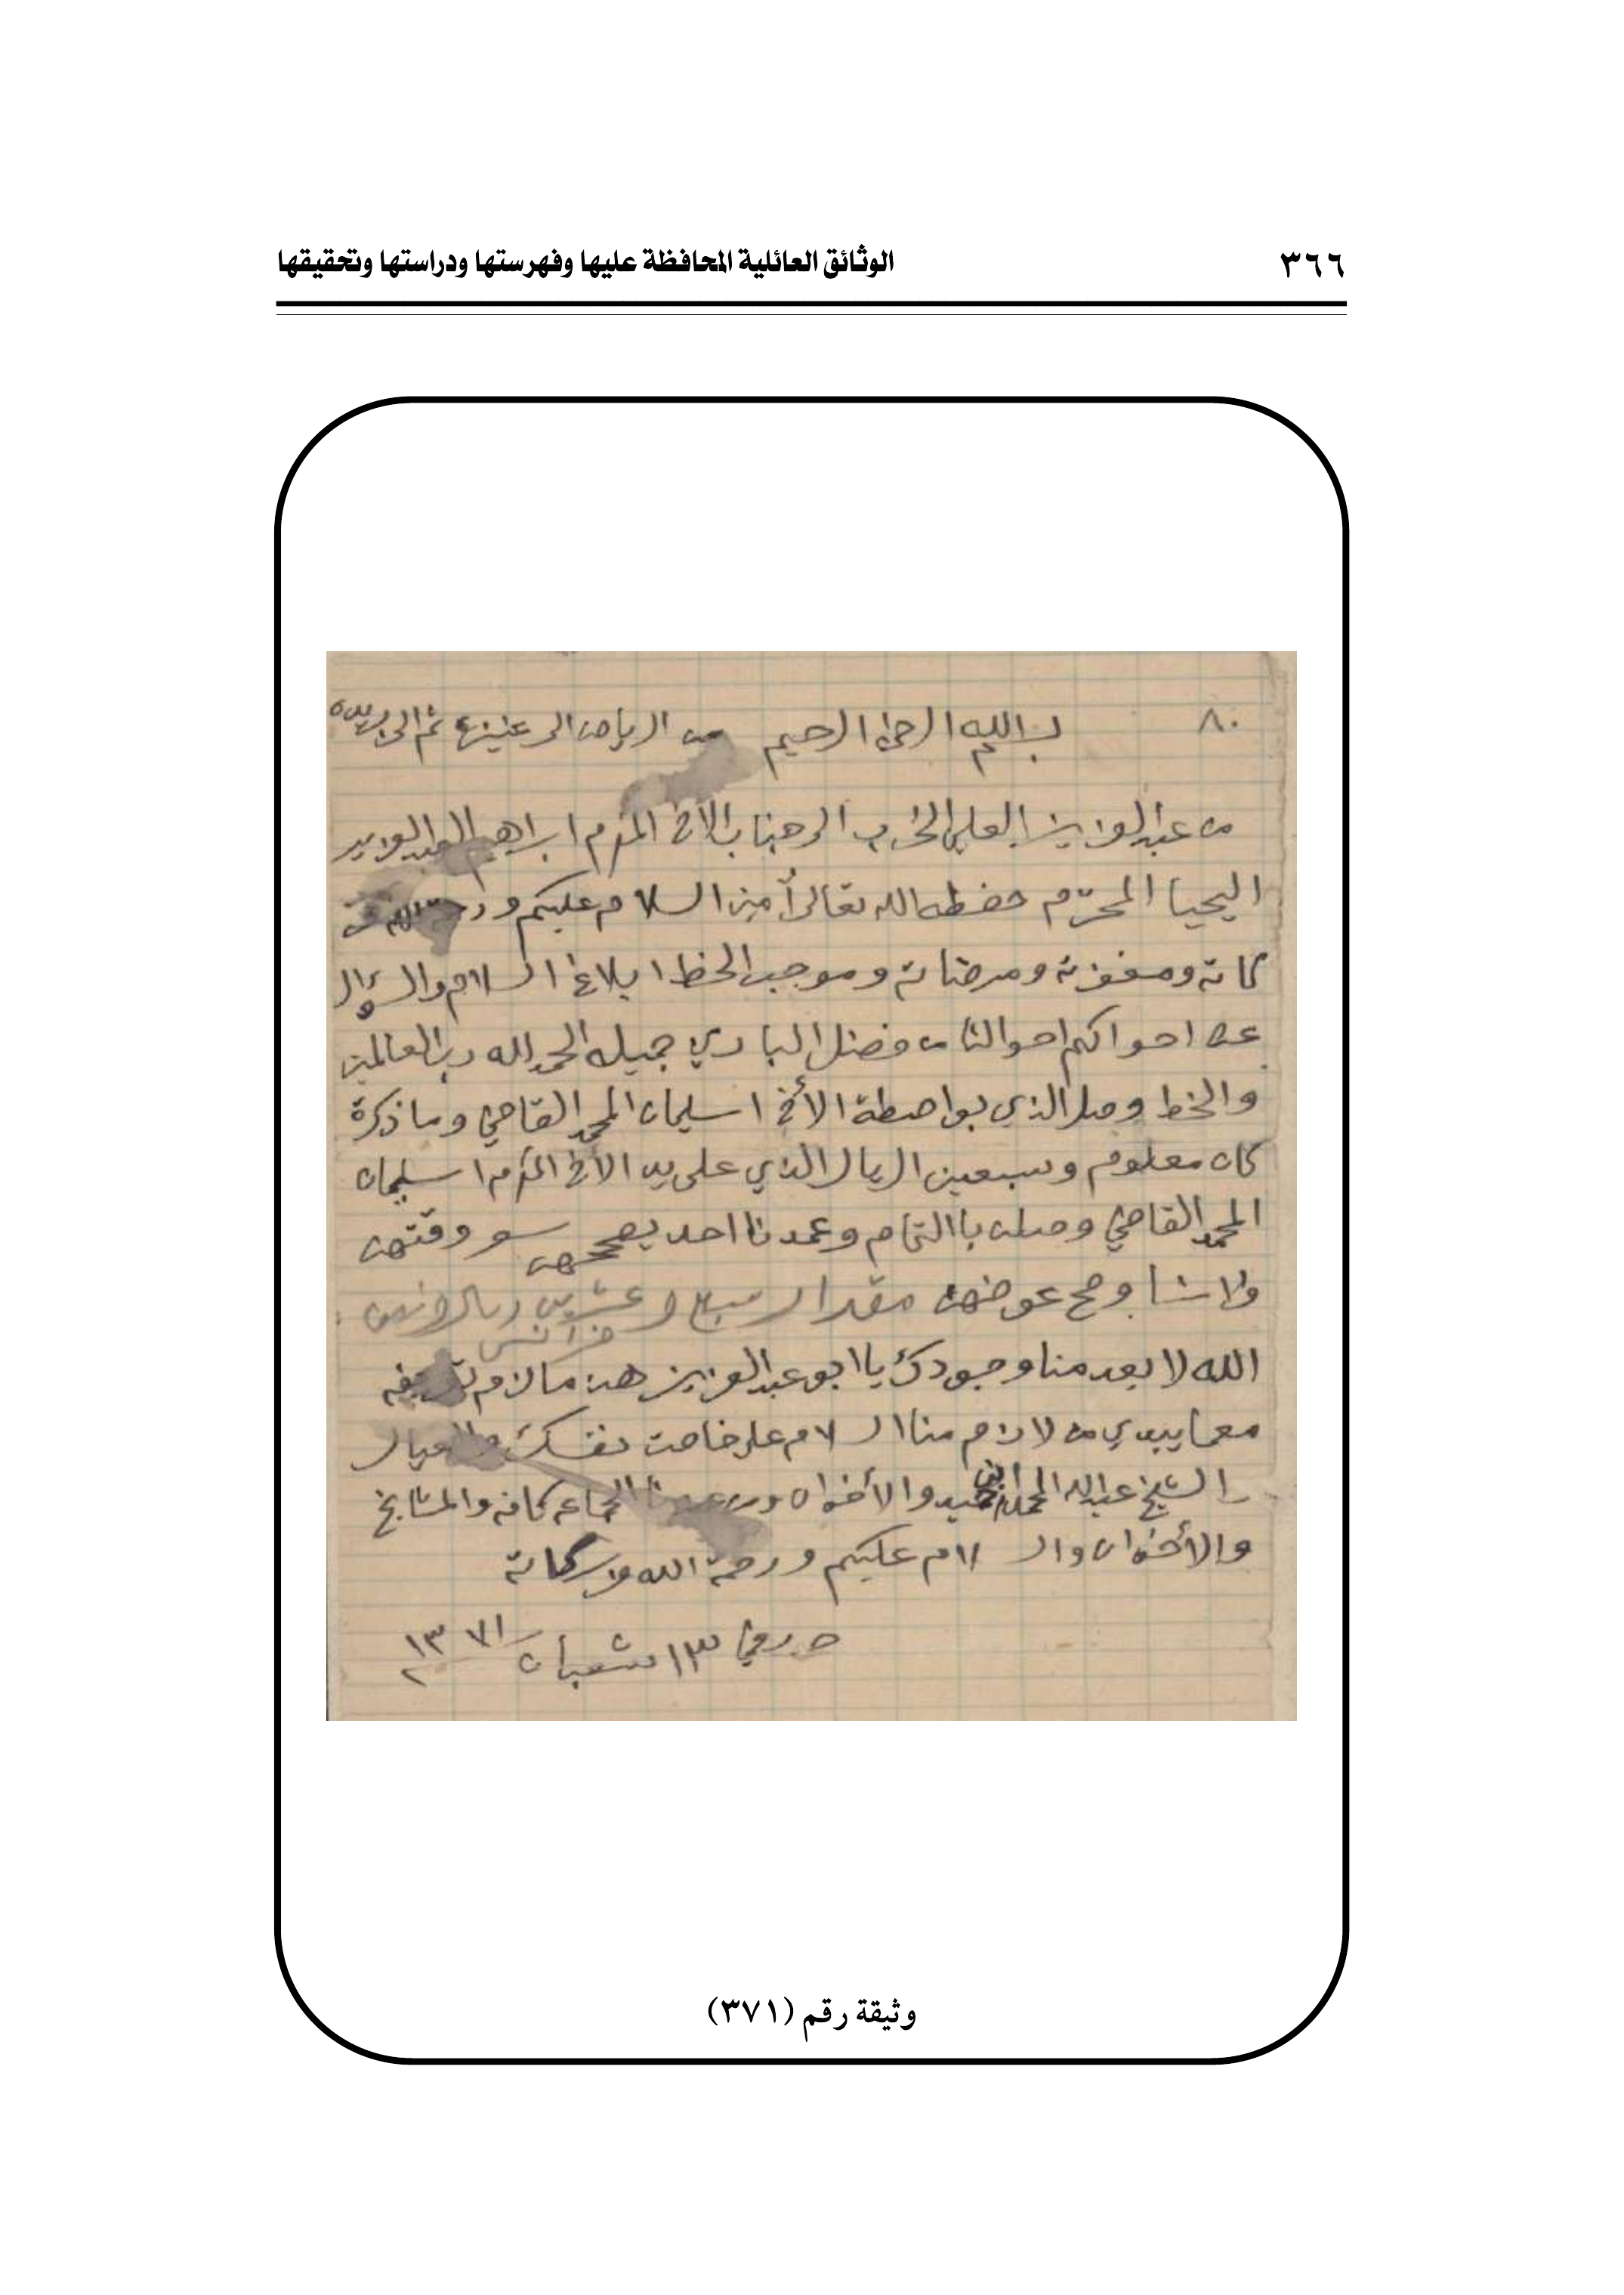 ٣٦٦
الوثائق العائلية المحافظة عليها وفهرستها ودراستها وتحقيقها
٨٠
بسم الله الرحمن الرحيم من الرياض الى عنيزة ثم الى بريده
من عبدالعزيز العلي الى جناب الأخ المكرم ابراهيم العبدالعزيز
اليحيا المحترم حفظه الله تعالى أمين السلام عليكم ورحمة الله وبر
كاته ومغفرته ومرضاته وموجب الخط ابلاغ السلام والسؤال
عن احوالكم احوالنا من فضل الباري جميله الحمدالله رب العالمين
والخط وصل الذي بواصطة الأخ اسليمان المحمد القاضي وما ذكرة
كان معلوم وسبعين الريال الذي على يد الأخ المكرم اسليمان
المحمد القاضي وصلن باالتمام وعمدنا احد يصححهن
ولا عوضهن مقدار سبع وعشرين ريال
الله لا يعدمنا وجودك يا ابو عبدالعزيز هذ مالزم تعريفه
معما يبدي من لازم منا السلام على خاصت نفسك والعيال
والشيخ عبدالله المحمد ابن حميد والأخوان ومن عندنا الجماعه كافه والمشايخ
والأخوان والسلام عليكم ورحمة الله وبركاتة
١٣ شعبان ١٣٧١
وثيقة رقم (٣٧١)